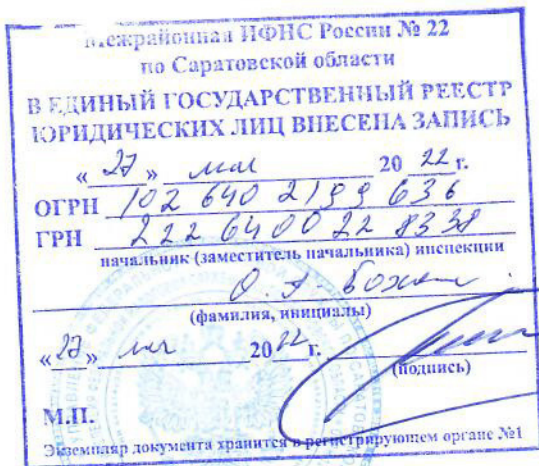 Межрайонная ИФНС России № 22
по Саратовской области
В ЕДИНЫЙ ГОСУДАРСТВЕННЫЙ РЕЕСТР
ЮРИДИЧЕСКИХ ЛИЦ ВНЕСЕНА ЗАПИСЬ
«27» мая 2022 г.
ОГРН 102 640 2199 636
ГРН 222 6400 22 8338
начальник (заместитель начальника) инспекции
(фамилия, инициалы)
«27» мая 2022 г.
(подпись)
М.П.
Экземпляр документа хранится в регистрирующем органе №1